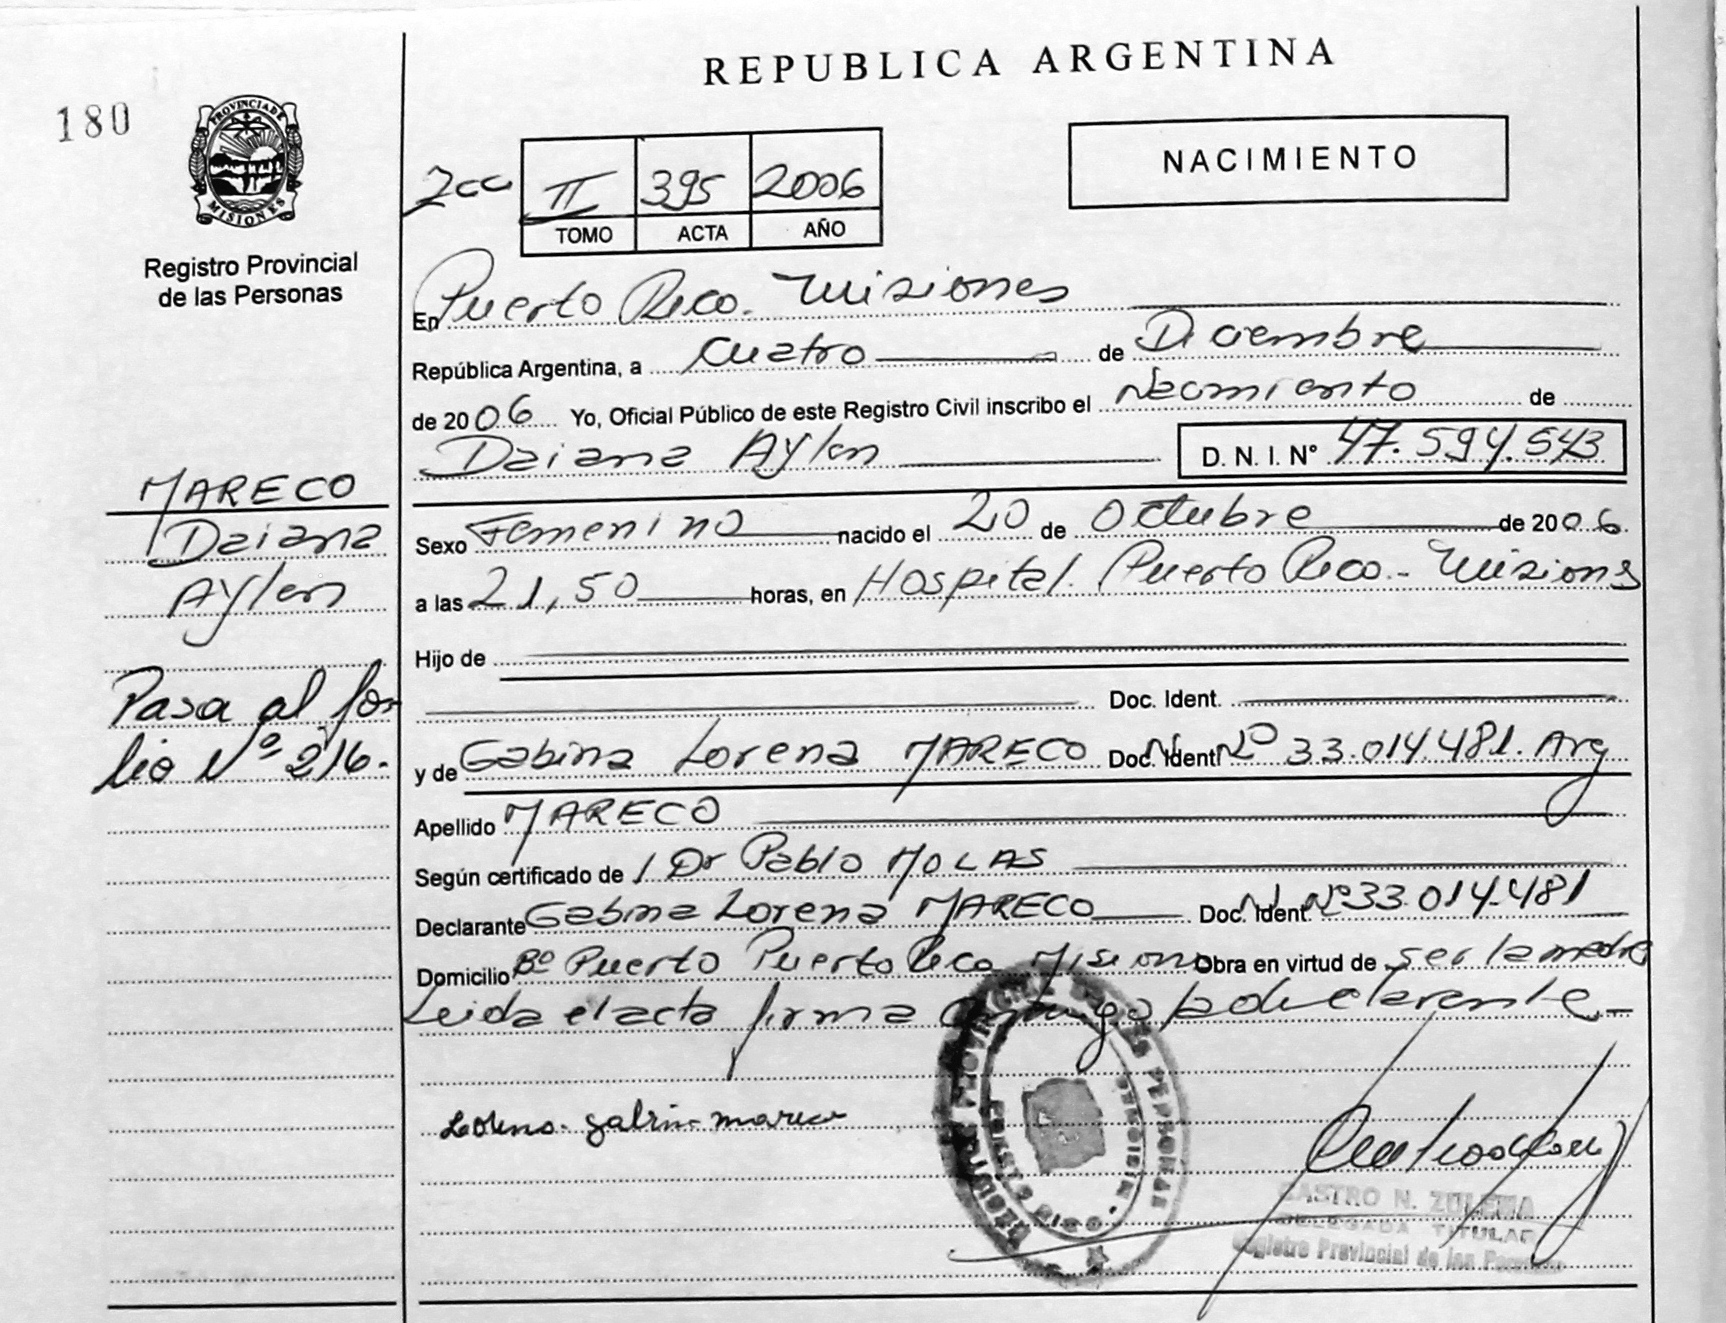 REPUBLICA ARGENTINA
180
PROVINCIA DE MISIONES
Registro Provincial
de las Personas
NACIMIENTO
II 395 2006
TOMO ACTA AÑO
En Puerto Rico. Misiones
República Argentina, a cuatro de Diciembre
de 2006 Yo, Oficial Público de este Registro Civil inscribo el Nacimiento de
Daiana Aylen D. N. I. N° 47.594.543
MARECO
Daiana
Aylen
Pasa al fo-
lio Nº 216.
Sexo Femenino nacido el 20 de Octubre de 2006
a las 21,50 horas, en Hospital. Puerto Rico.- Misiones
Hijo de
Doc. Ident.
y de Gabina Lorena MARECO Doc. Ident. Nº 33.014.481. Arg
Apellido MARECO
Según certificado de Dr Pablo MOLAS
Declarante Gabina Lorena MARECO Doc. Ident. Nº 33.014.481
Domicilio Bº Puerto Puerto Rico Misiones Obra en virtud de ser la madre
Leida el acta firma conmigo la declarante.-
Lorena gabina mareco
CASTRO N. ZULEMA
DELEGADA TITULAR
Registro Provincial de las Personas